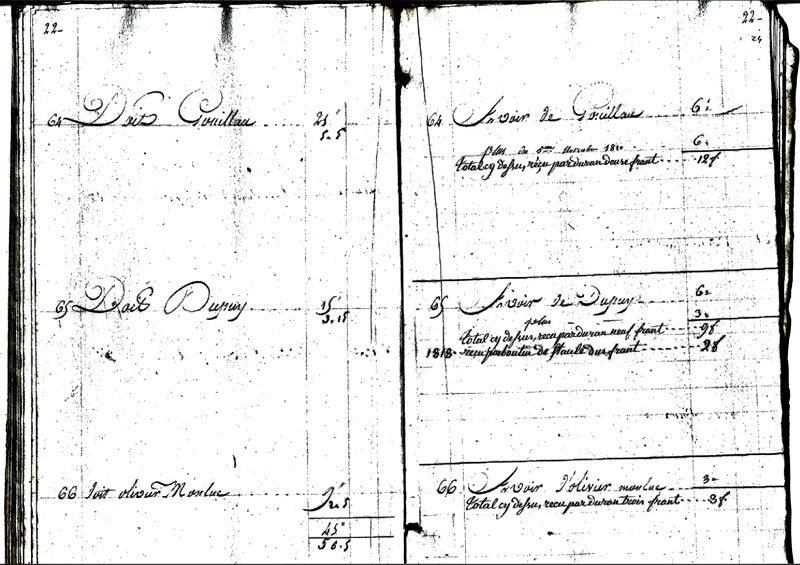 22
64 Doit Gouillau 21
5.5
65 Doit Dupuy 15
3.15
66 Doit olivier Monluc 9
2.5
45
56.5
22
24
64 Avoir de Gouillau 6
plus du 5me Novembre 1810 6
Total cy dessus, reçu par duran douze frant 12f
65 Avoir de Dupuy 6
plus 3
total cy dessus, reçu par duran neuf frant 9f
1818 reçu par boutin de Staule dus frant 2f
66 Avoir d'olivier monluc 3
total cy dessus, reçu par duran trois frant 3f